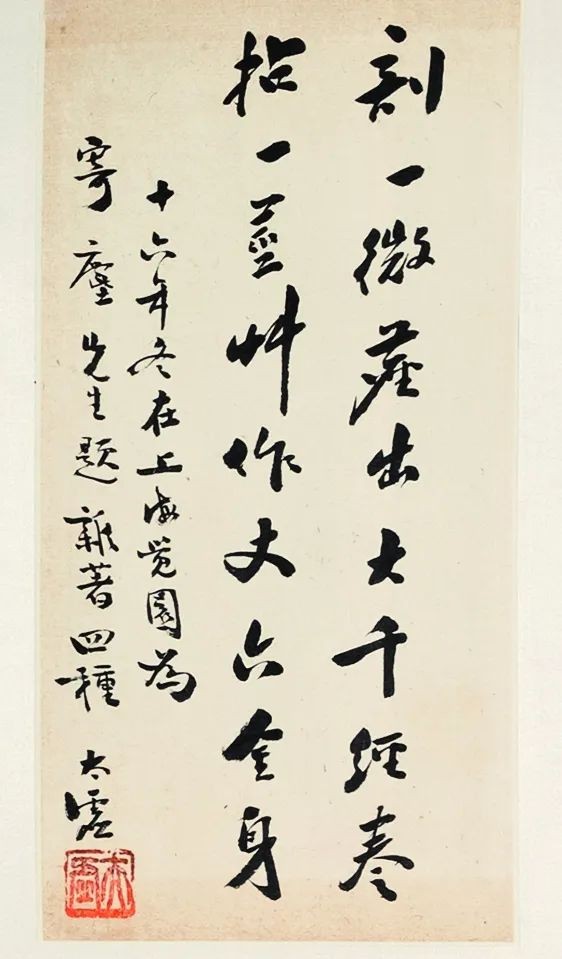 剖一微塵出大千經卷
拈一莖艸作丈六金身
十六年冬在上海觉園为
寄塵先生題雜著四種
太虛
太虛